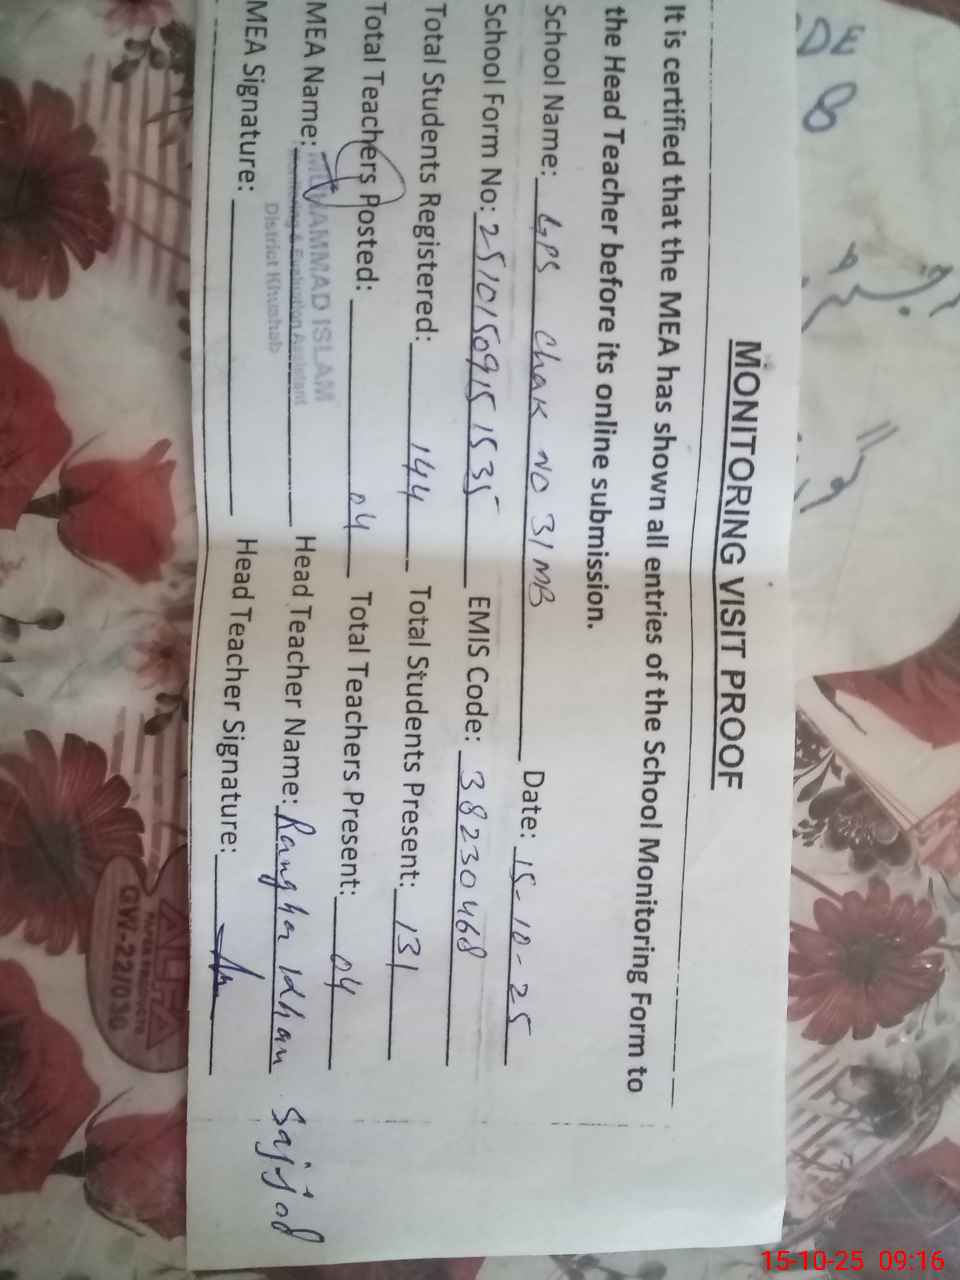 MONITORING VISIT PROOF
It is certified that the MEA has shown all entries of the School Monitoring Form to
the Head Teacher before its online submission.
School Name: GPS Chak NO 31 MB Date: 15-10-25
School Form No: 2510150915 1535 EMIS Code: 38230468
Total Students Registered: 144 Total Students Present: 131
Total Teachers Posted: 04 Total Teachers Present: 04
MEA Name: MUHAMMAD ISLAM Head Teacher Name: Rangha Khan Sajjad
Monitoring & Evaluation Assistant
District Khushab
MEA Signature: Head Teacher Signature:
ALFA
PAPER PRODUCTS
GW-22/036
DE
8
15-10-25 09:16